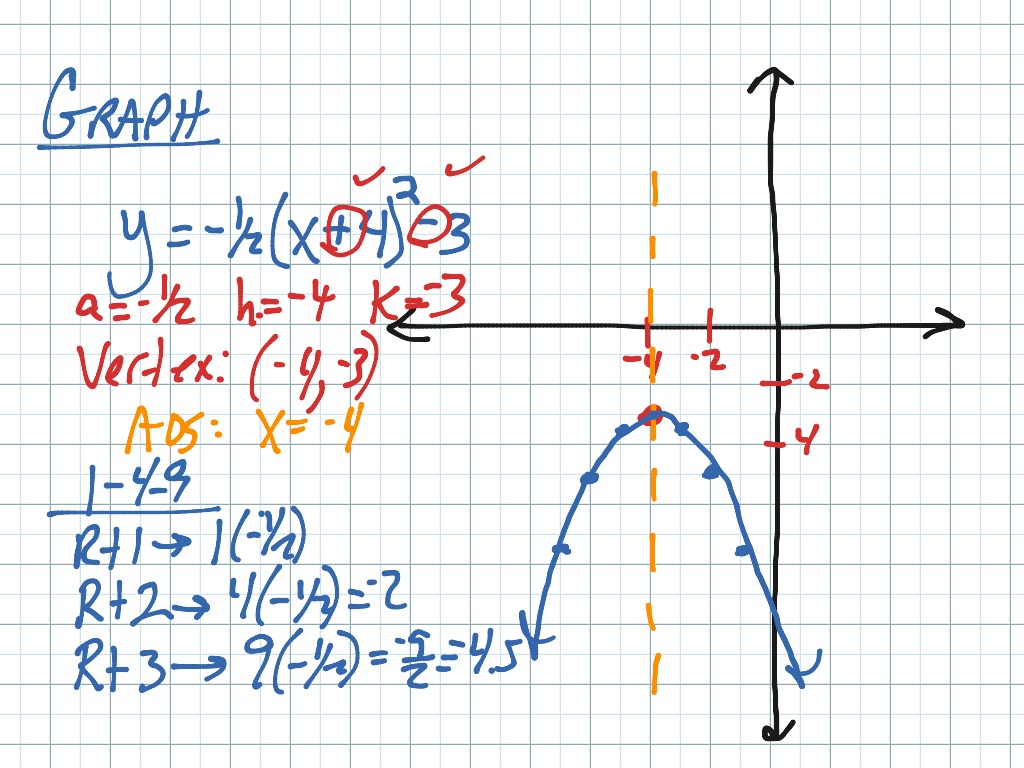 GRAPH
y = -1/2(x+4)² - 3
a = -1/2 h = -4 K = -3
Vertex: (-4, -3)
AOS: X = -4
1-4-9
R+1 → 1(-1/2)
R+2 → 4(-1/2) = -2
R+3 → 9(-1/2) = -9/2 = -4.5
-4 -2
-2
-4